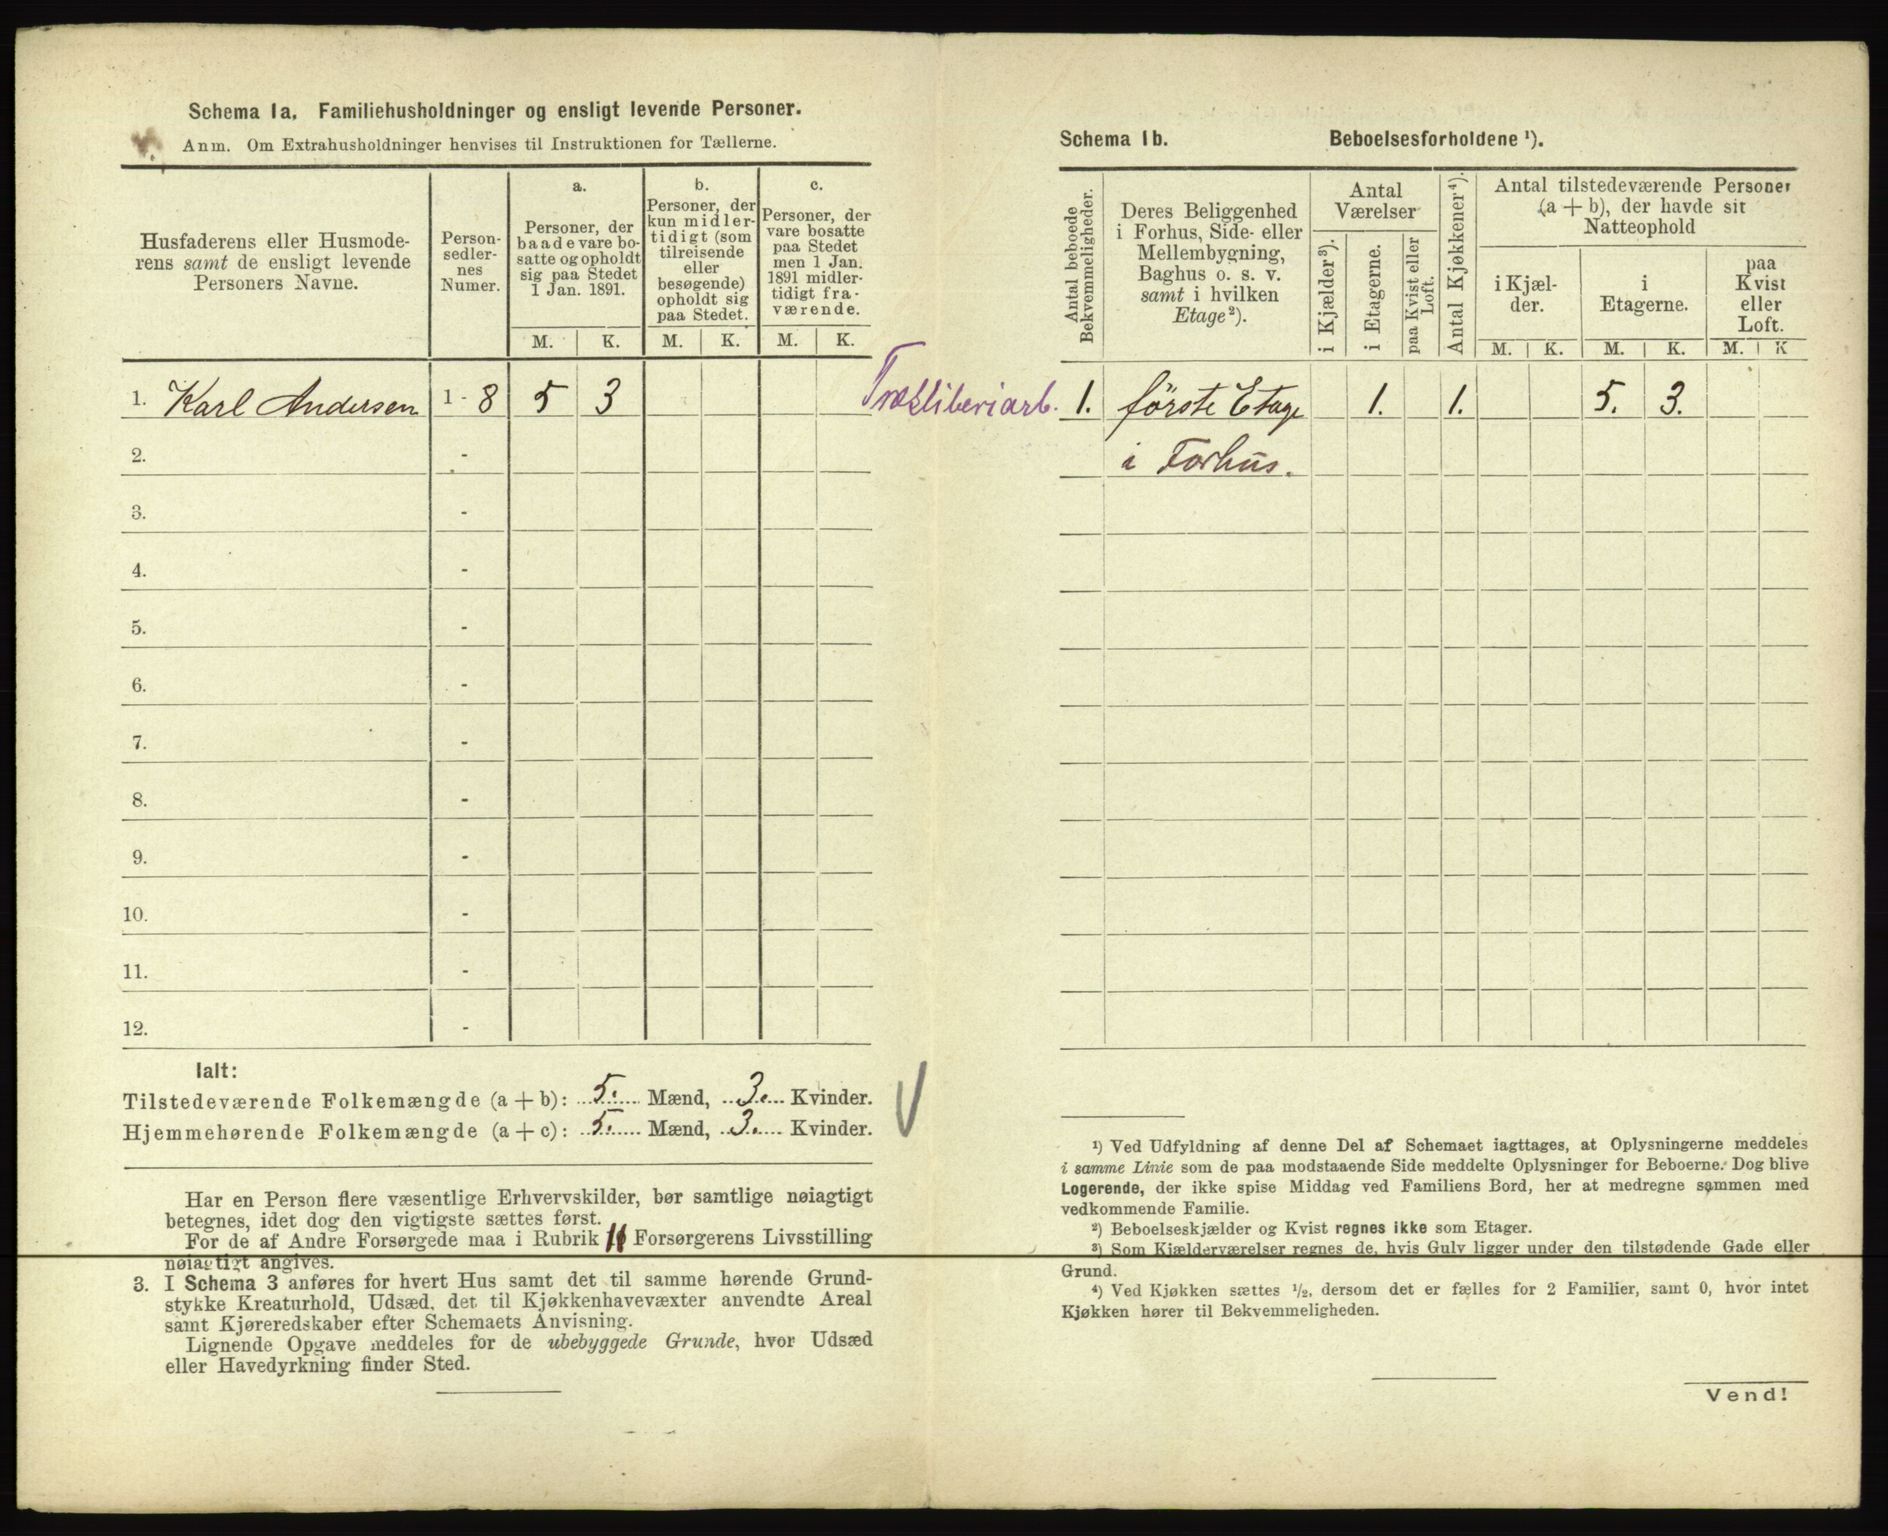 Schema 1a. Familiehusholdninger og ensligt levende Personer.
Anm. Om Extrahusholdninger henvises til Instruktionen for Tællerne.
Husfaderens eller Husmode-
rens samt de ensligt levende
Personers Navne.
Person-
sedler-
nes
Numer.
a.
Personer, der
baade vare bo-
satte og opholdt
sig paa Stedet
1 Jan. 1891.
b.
Personer, der
kun midler-
tidigt (som
tilreisende
eller
besøgende)
opholdt sig
paa Stedet.
c.
Personer, der
vare bosatte
paa Stedet
men 1 Jan.
1891 midler-
tidigt fra-
værende.
M. K. M. K. M. K.
1. Karl Andersen 1 - 8 5 3
2. -
3. -
4. -
5. -
6. -
7. -
8. -
9. -
10. -
11. -
12. -
Ialt:
Tilstedeværende Folkemængde (a + b): 5. Mænd, 3. Kvinder.
Hjemmehørende Folkemængde (a + c): 5. Mænd, 3. Kvinder.
Har en Person flere væsentlige Erhvervskilder, bør samtlige nøiagtigt
betegnes, idet dog den vigtigste sættes først.
For de af Andre Forsørgede maa i Rubrik 11 Forsørgerens Livsstilling
nøiagtigt angives.
3. I Schema 3 anføres for hvert Hus samt det til samme hørende Grund-
stykke Kreaturhold, Udsæd, det til Kjøkkenhavevæxter anvendte Areal
samt Kjøreredskaber efter Schemaets Anvisning.
Lignende Opgave meddeles for de ubebyggede Grunde, hvor Udsæd
eller Havedyrkning finder Sted.
Schema 1b. Beboelsesforholdene ¹).
Antal beboede
Bekvemmeligheder.
Deres Beliggenhed
i Forhus, Side- eller
Mellembygning,
Baghus o. s. v.
samt i hvilken
Etage²).
Antal
Værelser
i Kjælder³).
i Etagerne.
paa Kvist eller
Loft.
Antal Kjøkkener⁴).
Antal tilstedeværende Personer
(a + b), der havde sit
Natteophold
i Kjæl-
der.
i
Etagerne.
paa
Kvist
eller
Loft.
M. K. M. K. M. K
Træsliberiarb. 1. første Etage 1. 1. 5. 3.
i Forhus.
¹) Ved Udfyldning af denne Del af Schemaet iagttages, at Oplysningerne meddeles
i samme Linie som de paa modstaaende Side meddelte Oplysninger for Beboerne. Dog blive
Logerende, der ikke spise Middag ved Familiens Bord, her at medregne sammen med
vedkommende Familie.
²) Beboelseskjælder og Kvist regnes ikke som Etager.
³) Som Kjælderværelser regnes de, hvis Gulv ligger under den tilstødende Gade eller
Grund.
⁴) Ved Kjøkken sættes ½, dersom det er fælles for 2 Familier, samt 0, hvor intet
Kjøkken hører til Bekvemmeligheden.
Vend!